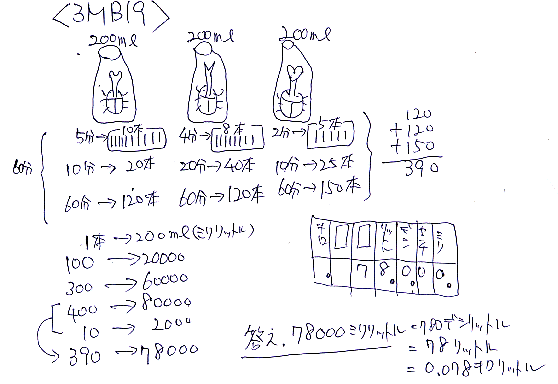 <3MB19
200ml 200ml 200ml
5分→10本 4分→8本 2分→5本
60分
10分→20本 20分→40本 10分→25本
60分→120本 60分→120本 60分→150本
120
+120
+150
390
1本→200ml(ミリリットル)
100→20000
300→60000
400→80000
10→2000
390→78000
キロ リットル デシ センチ ミリ
. 7 8. 0 0 0.
答え.78000ミリリットル=780デシリットル
=78リットル
=0.078キロリットル